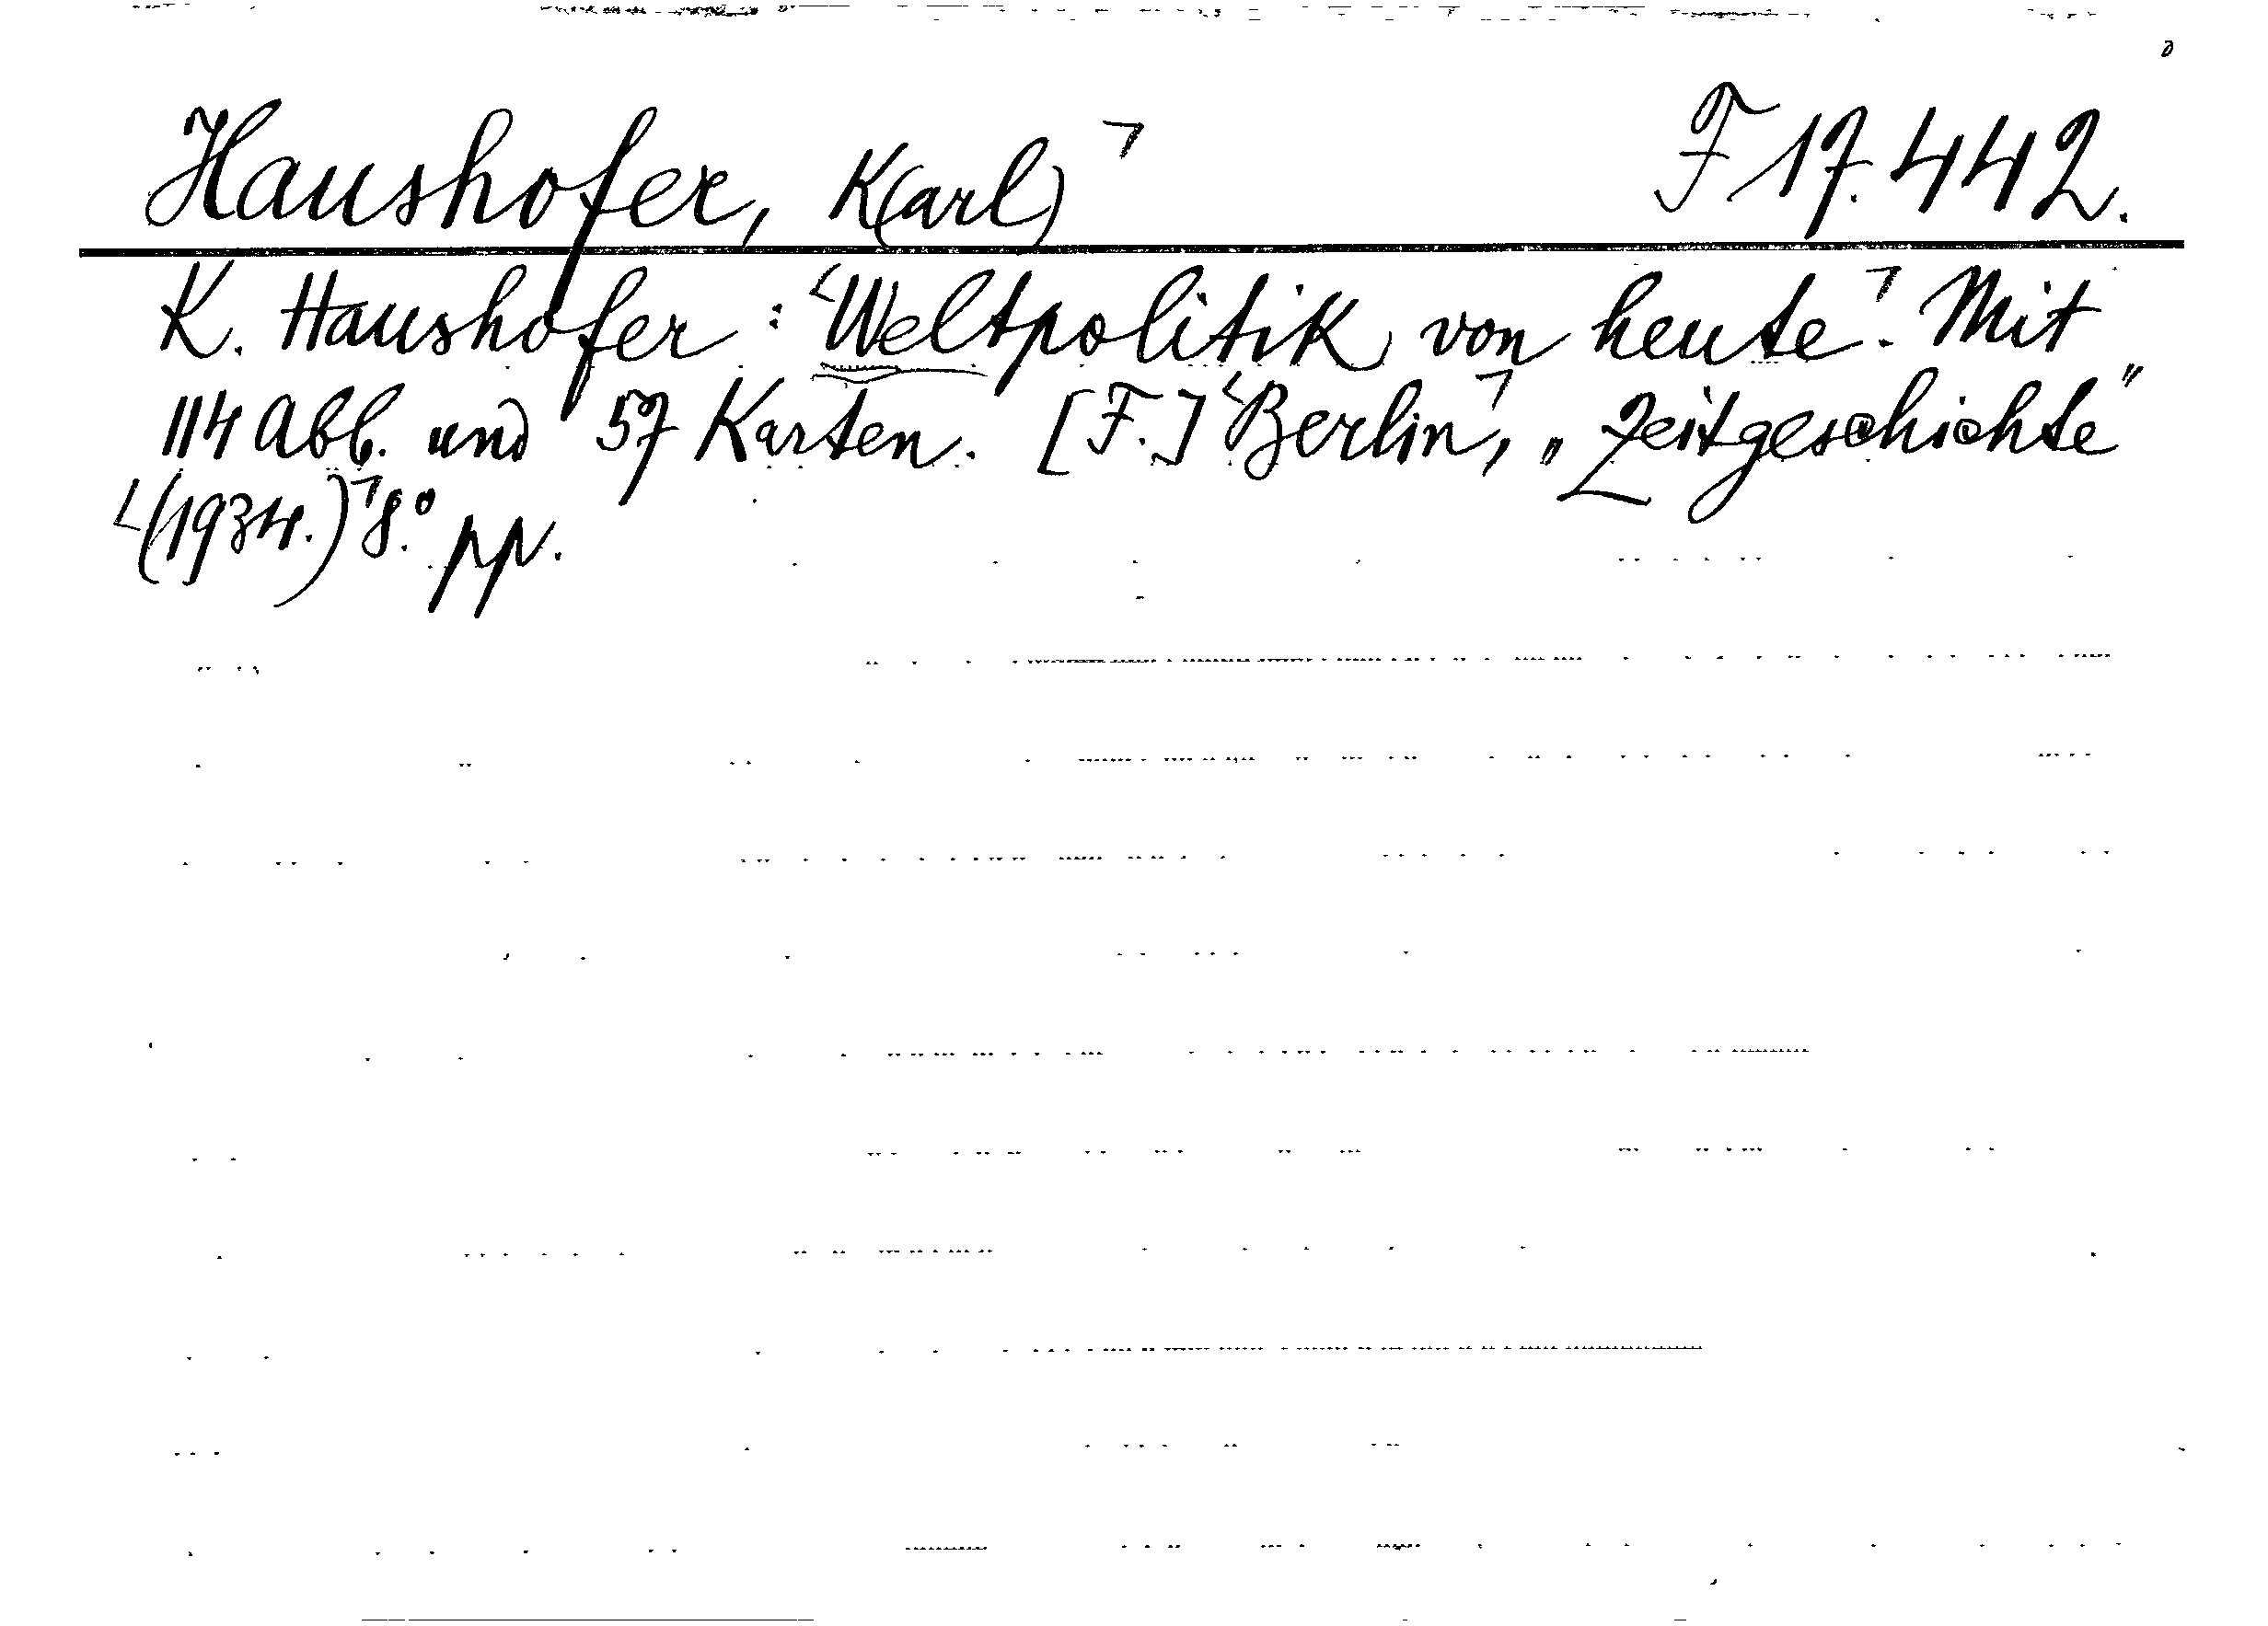 Haushofer, K(arl) F 17.442.
K. Haushofer: Weltpolitik von heute. Mit
114 Abb. und 57 Karten. [F.] Berlin, „Zeitgeschichte"
(1934.) 8.° pp.